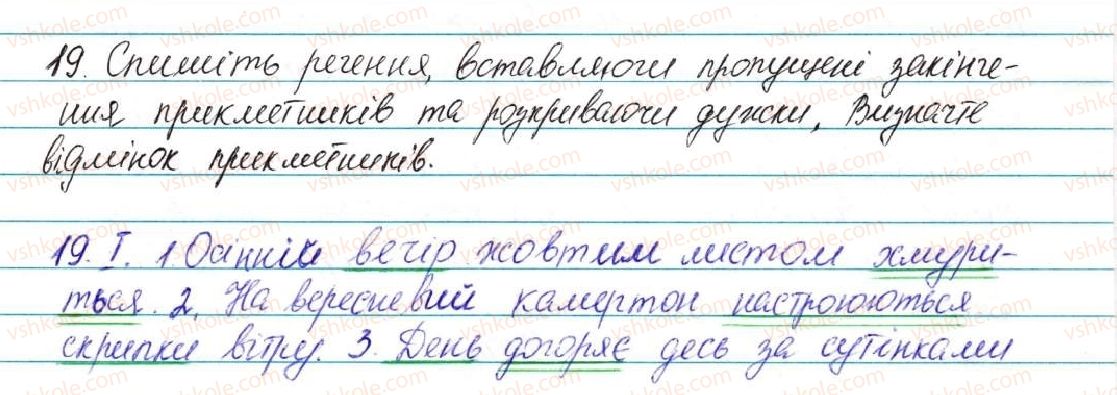 19. Спишіть речення, вставляючи пропущені закінче-
ння прикметників та розкриваючи дужки. Визначте
відмінок прикметників.
19. І. 1. Осінній вечір жовтим листом хмури-
ться. 2. На вересневий камертон настроюються
скрипки вітру. 3. День догоряє десь за сутінками